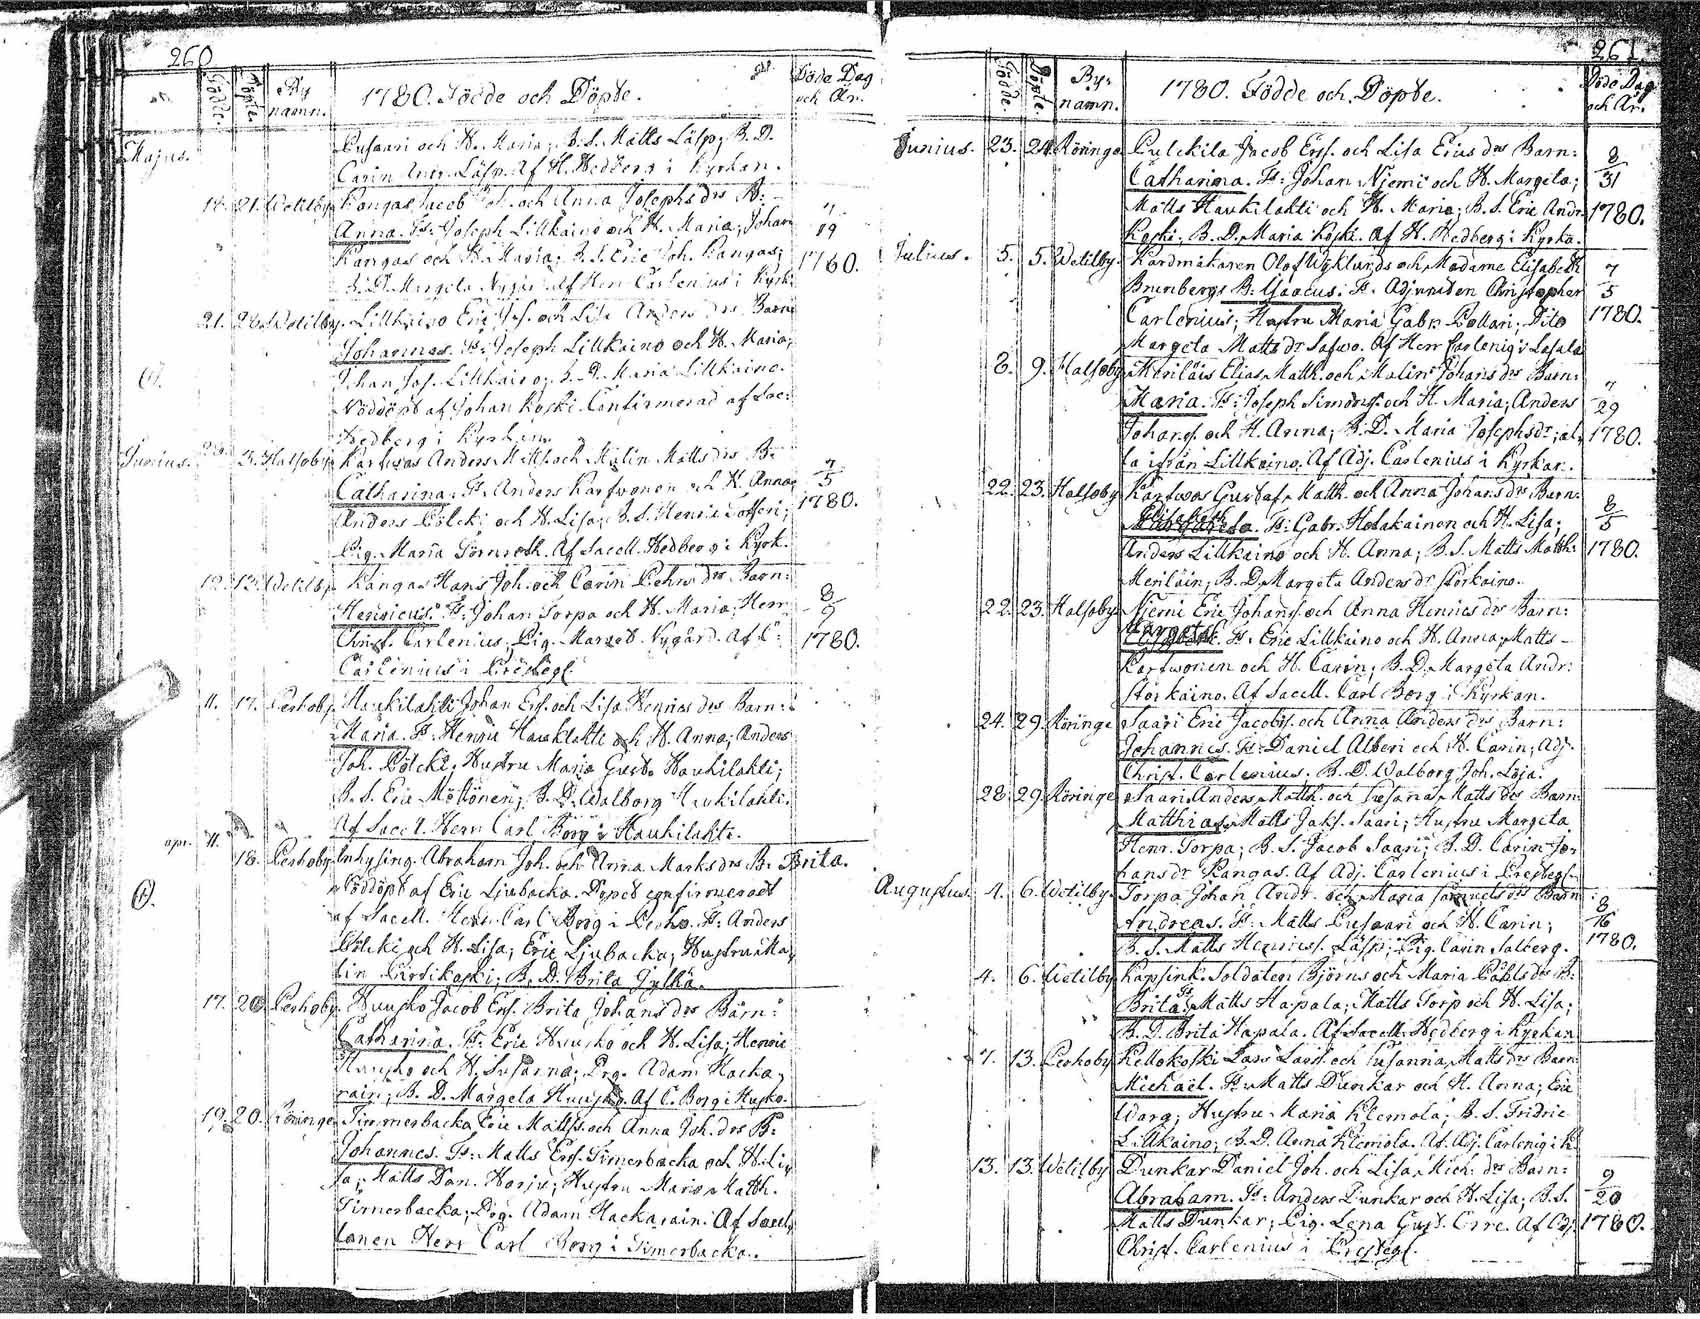 260
Födde.
Döpte.
By
namn.
1780. Födde och Döpte.
Döde Dag
och År.
Majus.
och H. Maria; B. S. Matts Läsp; B. D.
Carin Läsp. Af H. Hedberg i Kyrkan.
21. Wetilby. Kangas Jacob och Anna Josephs drs B:
Anna. Ft: Joseph Lillkaino och H. Maria; Johan
Kangas och H. Maria; B. S. Eric Joh. Kangas;
B. D. Margeta Af Herr Carlenius i Kyrk.
19
1780.
21. Wetilby. Lillkaino Eric och Lisa Anders drs Barn
Johannes. Ft: Joseph Lillkaino och H. Maria;
Johan Jos. Lillkaino; B. D. Maria Lillkaino.
Nöddöpt af Johan Koski. Confirmerad af Sac:
Hedberg i Kyrkan.
Junius. 3. Halsoby. Karfwas Anders och Malin Matts drs B:
Catharina. Ft: Anders Karfwonen och H. Anna;
Anders Pölcki och H. Lisa; B. S. Henric
Pig. Maria Af Sacell. Hedberg i Kyrk.
7
5
1780.
12. 13. Wetilby. Kangas Hans Joh. och Carin drs Barn:
Henricus. Ft: Johan Torpa och H. Maria; Herr
Christ. Carlenius; Pig. Marget. Nygård. Af C:
Carlenius i Prestegl.
8
9
1780.
11. 17. Perhoby. Haukilahti Johan Ers. och Lisa Henrics drs Barn:
Maria. Ft: Henric Haukilahti och H. Anna; Anders
Joh. Pölcki; Hustru Maria Gust. Haukilahti;
B. S. Eric Möttönen; B. D. Walborg Haukilahti.
Af Sacell. Herr Carl Borg i Haukilahti.
apr. 11. 18. Perhoby. Inhysing. Abraham Joh. och Anna Marks drs B: Brita.
Nöddöpt af Eric Ljubacka. Döpet confirmeradt
af Sacell. Herr Carl Borg i Perho. Ft: Anders
Pölcki och H. Lisa; Eric Ljubacka; Hustru Ma
lin B. D. Brita Jylhä.
17. 20. Perhoby. Huusko Jacob Ers. Brita Johans drs Barn:
Catharina. Ft: Eric Huusko och H. Lisa; Henric
Huusko och H. Susanna; Drg. Adam Hacka,
rain; B. D. Margeta Huusko. Af C. Borg i Husko.
19. 20. Röringe. Timmerbacka Eric Matts. och Anna Joh. drs B:
Johannes. Ft: Matts Ers. Timerbacka och H. Li
sa; Matts Dan. Horju; Hustru Maria Matth.
Timerbacka; Drg. Adam Hackarain. Af Sacel,
lanen Herr Carl Borg i Timerbacka.
261.
Födde.
Döpte.
By:
namn.
1780. Födde och Döpte.
Döde Dag
och År.
Junius. 23. 24. Röringe Pulckila Jacob Ers. och Lisa Erics drs Barn:
Catharina. Ft: Johan Njemi och H. Margeta;
Matts Haukilahti och H. Maria; B. S. Eric Andr.
Koski; B. D. Maria Koski. Af H. Hedberg i Kyrka.
8
31
1780.
Julius. 5. 5. Wetilby. Kardmakaren Olof Wyklunds och Madame Elisabeth
Brunbergs B: Isaacus. Ft: Adjuncten Christopher
Carlenius; Hustru Maria Gabr. Dito
Margeta Matts dr Safwo. Af Herr Carlenig i
7
5
1780.
8. 9. Halsoby. Meriläis Elias Matth. och Malin Johans drs Barn:
Maria. Ft: Joseph Simons. och H. Maria; Anders
Johans. och H. Anna; B. D. Maria Josephs dr; al,
la ifrån Lillkaino. Af Adj. Carlenius i Kyrkan.
29
1780.
22. 23. Halsoby. Karfwas Gustaf Matth. och Anna Johans drs Barn:
Elisabeth
Margareta. Ft: Gabr. Holakainen och H. Lisa;
Anders Lillkaino och H. Anna; B. S. Matts Matth:
Meriläin; B. D. Margeta Anders dr Storkaino.
8
5
1780.
22. 23. Halsoby. Njemi Eric Johans. och Anna Henrics drs Barn:
Marget.
Ft: Eric Lillkaino och H. Anna; Matts
Karfwonen och H. Carin; B. D. Margeta Andr:
Storkaino. Af Sacell. Carl Borg i Kyrkan.
24. 29. Röringe Saari Eric Jacobs. och Anna Anders drs Barn:
Johannes. Ft: Daniel Alberi och H. Carin; Adj.
Christ. Carlenius. B. D. Walborg Joh. Löja.
28. 29. Röringe Saari Anders Matth. och Susana Matts drs Barn:
Matthias. Matts Jaks. Saari; Hustru Margeta
Henr. Torpa; B. S. Jacob Saari; B. D. Carin Jo,
hans dr Kangas. Af Adj. Carlenius i Prestegl.
Augustus. 4. 6. Wetilby. Torpa Johan Andr. och Maria Samuels drs Barn
Andreas. Ft: Matts Pusaari och H. Carin;
B. S. Matts Henrics. Läsp; Pig. Carin Salberg.
8
16
1780.
4. 6. Wetilby Kapsink. Soldaten Björns och Maria Påhls drs B:
Brita. Ft: Matts Hapala; Matts Torp och H. Lisa;
B. D. Brita Hapala. Af Sacell. Hedberg i Kyrkan
7. 13. Perhoby Kellokoski Lars Lars. och Susanna Matts drs Barn
Michael. Ft: Matts Dunkar och H. Anna; Eric
Warg; Hustru Maria Klemola; B. S. Fridric
Lillkaino; B. D. Anna Klemola. Af Adj. Carlenig i K.
13. 13. Wetilby Dunkar Daniel Joh. och Lisa Mich: drs Barn:
Abraham. Ft: Anders Dunkar och H. Lisa; B. S.
Matts Dunkar; Pig. Lena Gust. Orre. Af Adj.
Christ. Carlenius i Prestegl.
9
20
1780.